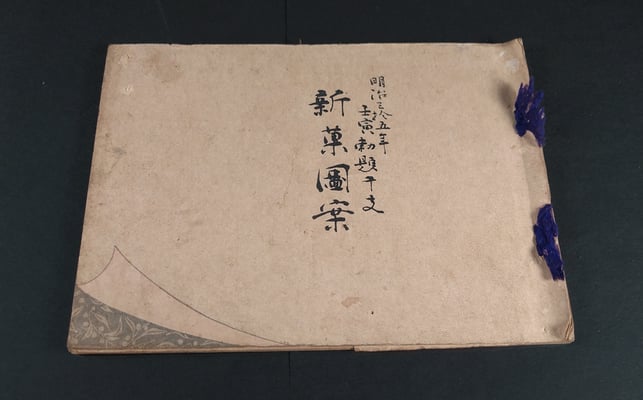 明治三拾五年
壬寅勅題干支
新菓圖案